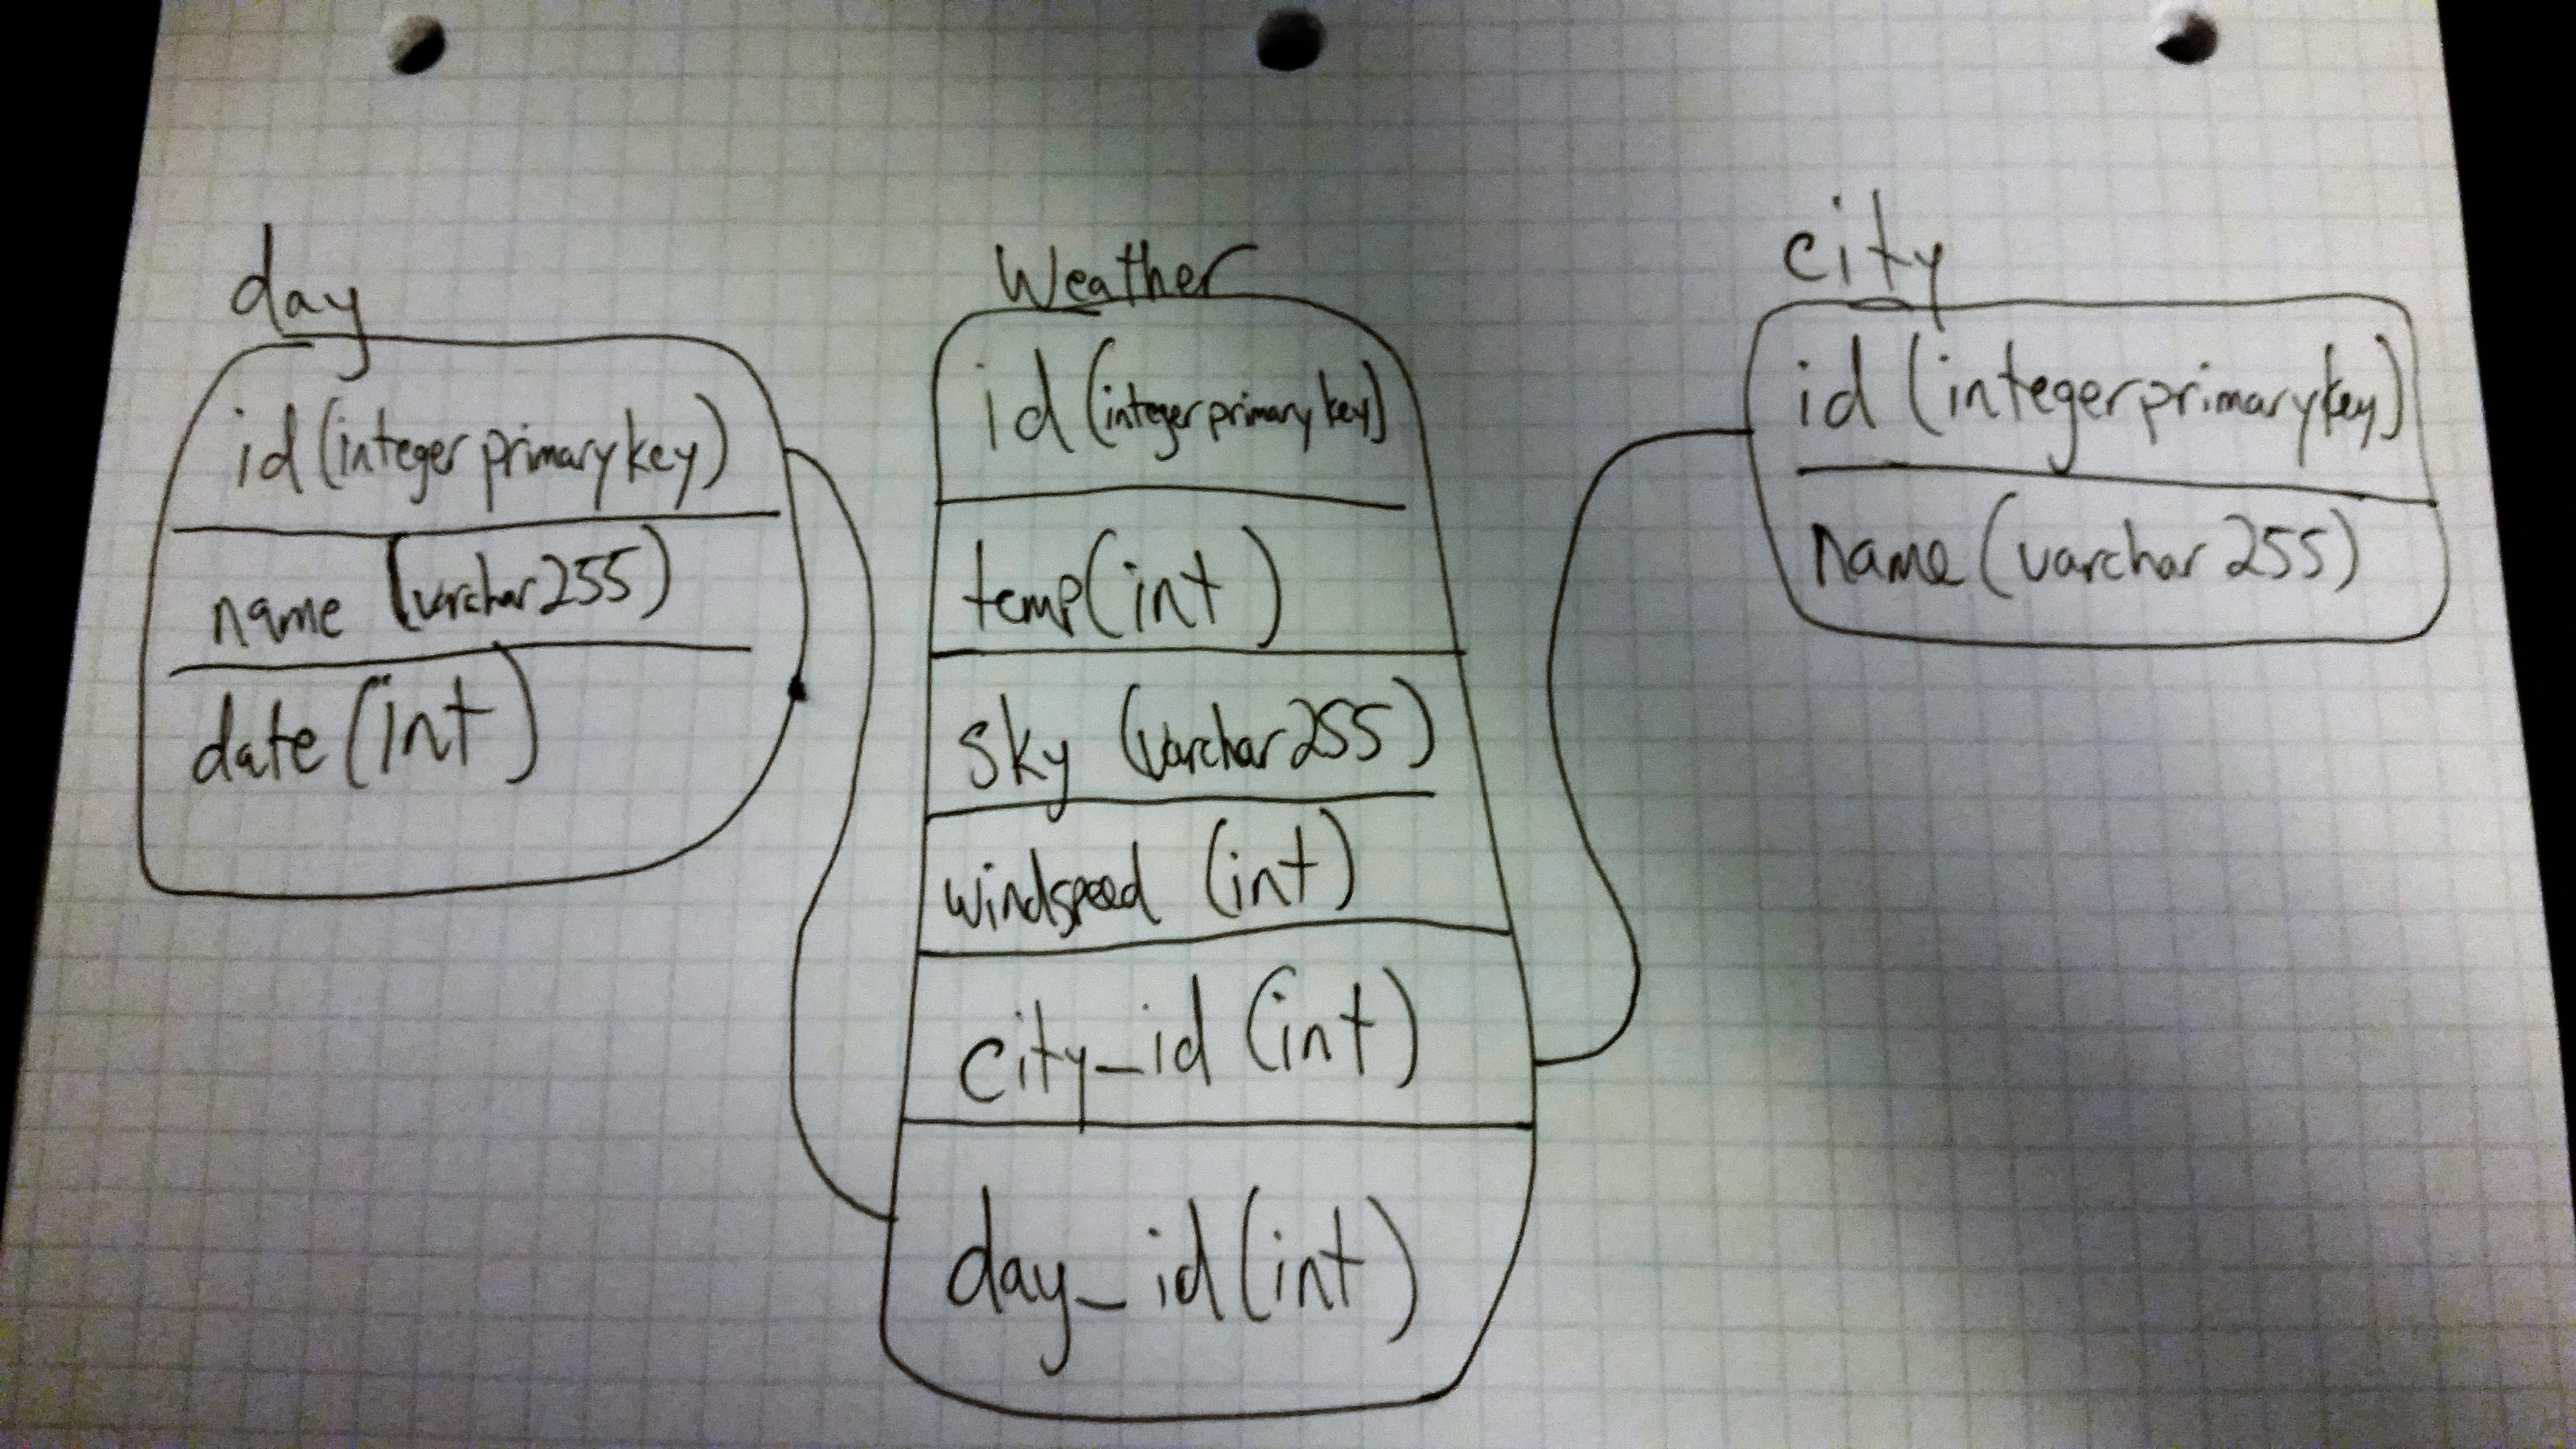 day
id (integer primary key)
name (varchar 255)
date (int)
Weather
id (integer primary key)
temp (int)
sky (varchar 255)
windspeed (int)
city_id (int)
day_id (int)
city
id (integer primary key)
name (varchar 255)